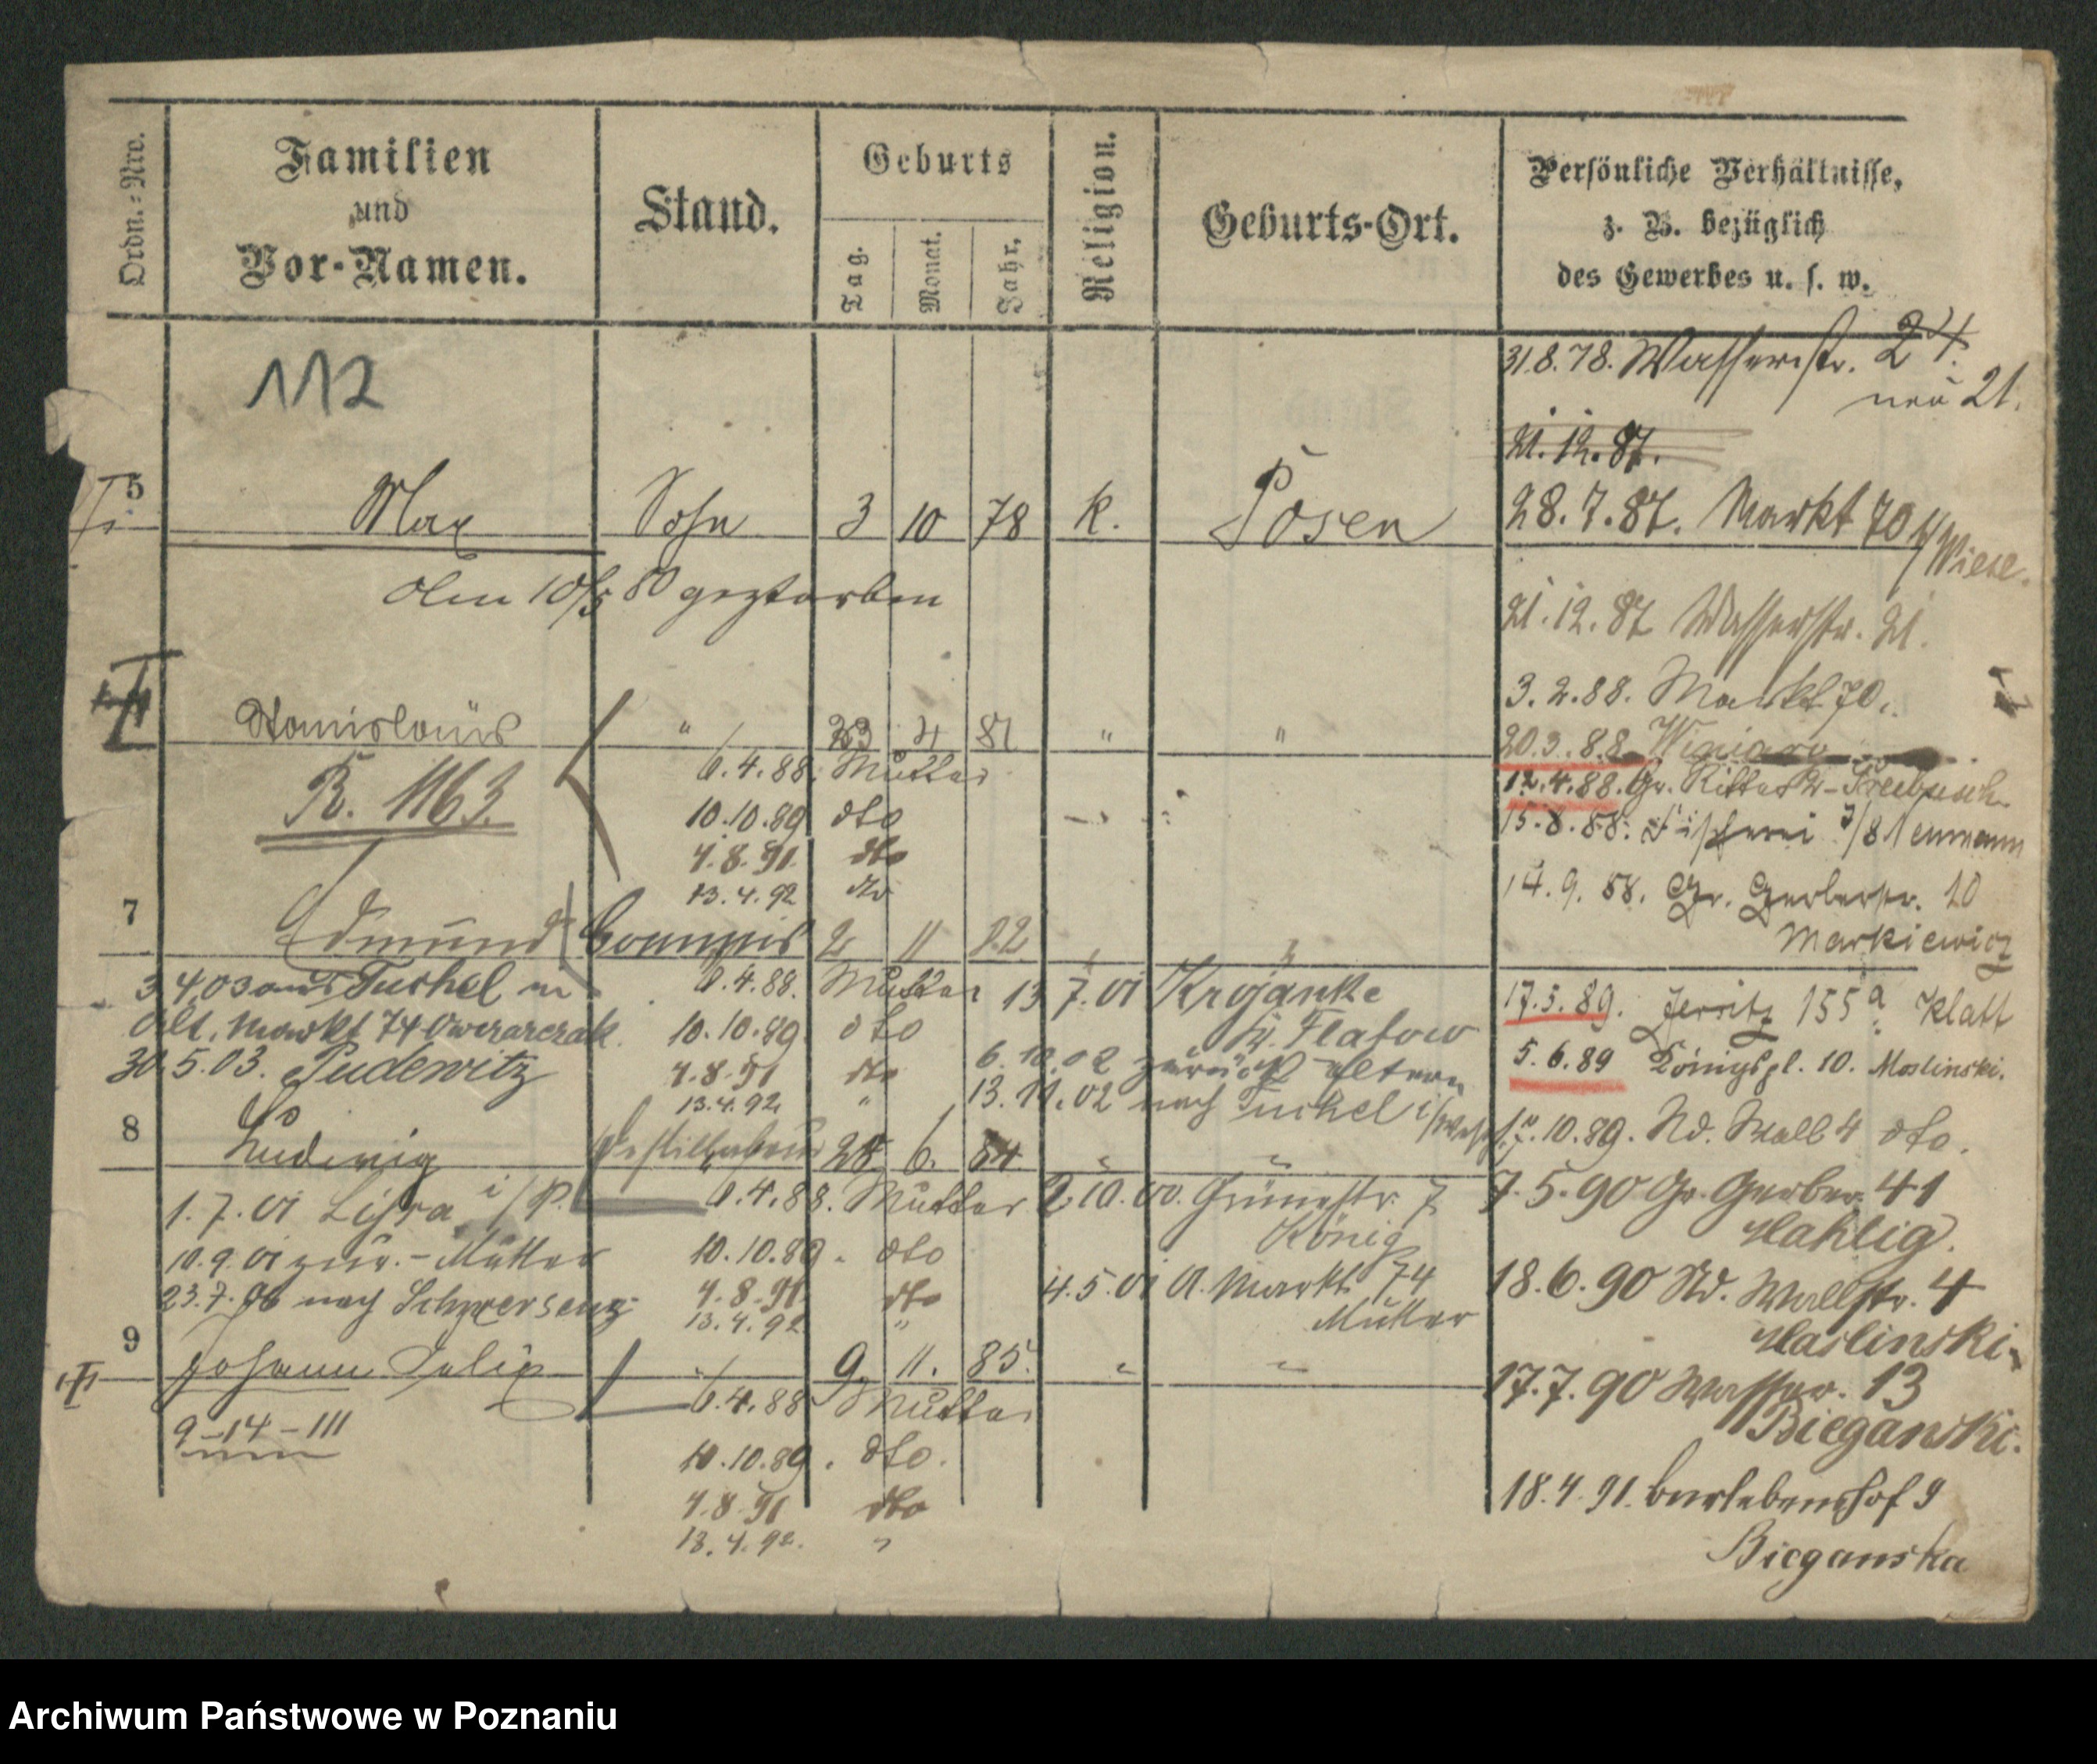 Ordn.-Nro.
Familien
und
Vor-Namen.
Stand.
Geburts
Tag.
Monat.
Jahr.
Religion.
Geburts-Ort.
Persönliche Verhältnisse,
z. B. bezüglich
des Gewerbes u. s. w.
112
31.8.78. Wasserstr. 24.
neu 21.
21.12.87.
5 Max Sohn 3 10 78 k. Posen
28.7.87. Markt 70 b/Wiese.
den 10/5 80 gestorben
21.12.87 Wasserstr. 21.
3.2.88. Markt 70.
Stanislaus " 23 4 81 " "
20.3.88. Winiary
R. 1163.
6.4.88. Mutter
12.4.88. Gr. Ritterstr.
10.10.89 dto
15.8.88. Fischerei 7/8 Neumann
4.8.91. dto
13.4.92 dto
14.9.88. Gr. Gerberstr. 10
Markiewicz
7 Edmund Commis 2 11 82 " "
3.4.03 aus Tuchel in
6.4.88. Mutter
13.7.01 Krojanke
Kr. Flatow
17.5.89. Jersitz 155a Klatt
Alt. Markt 74 Owczarczak.
10.10.89 dto
30.5.03. Pudewitz
4.8.91 dto
6.10.02 zurück Eltern
5.6.89 Königspl. 10. Moslinski.
13.4.92 "
13.11.02 nach Tuchel i/Westpr.
8 Ludwig 28 6. 84 " "
10.10.89. Nd. Wall 4 dto.
1.7.01 Lissa i/P.
6.4.88. Mutter
2.10.00. Grünestr. 7
König
7.5.90 Gr. Gerber. 41
Hahlig.
10.9.01 zur. - Mutter
10.10.89. dto
23.7.06 nach Schwersenz
4.8.91. dto
4.5.01 A. Markt 74
Mutter
18.6.90 Nd. Wallstr. 4
Maslinski.
13.4.92 "
9 Johann Felix " 9. 11. 85. " "
6.4.88 Mutter
17.7.90 Wasser. 13
Bieganski.
9-14-III
10.10.89. dto.
4.8.91 dto
18.4.91. 9
Bieganska
13.4.92. "
Archiwum Państwowe w Poznaniu